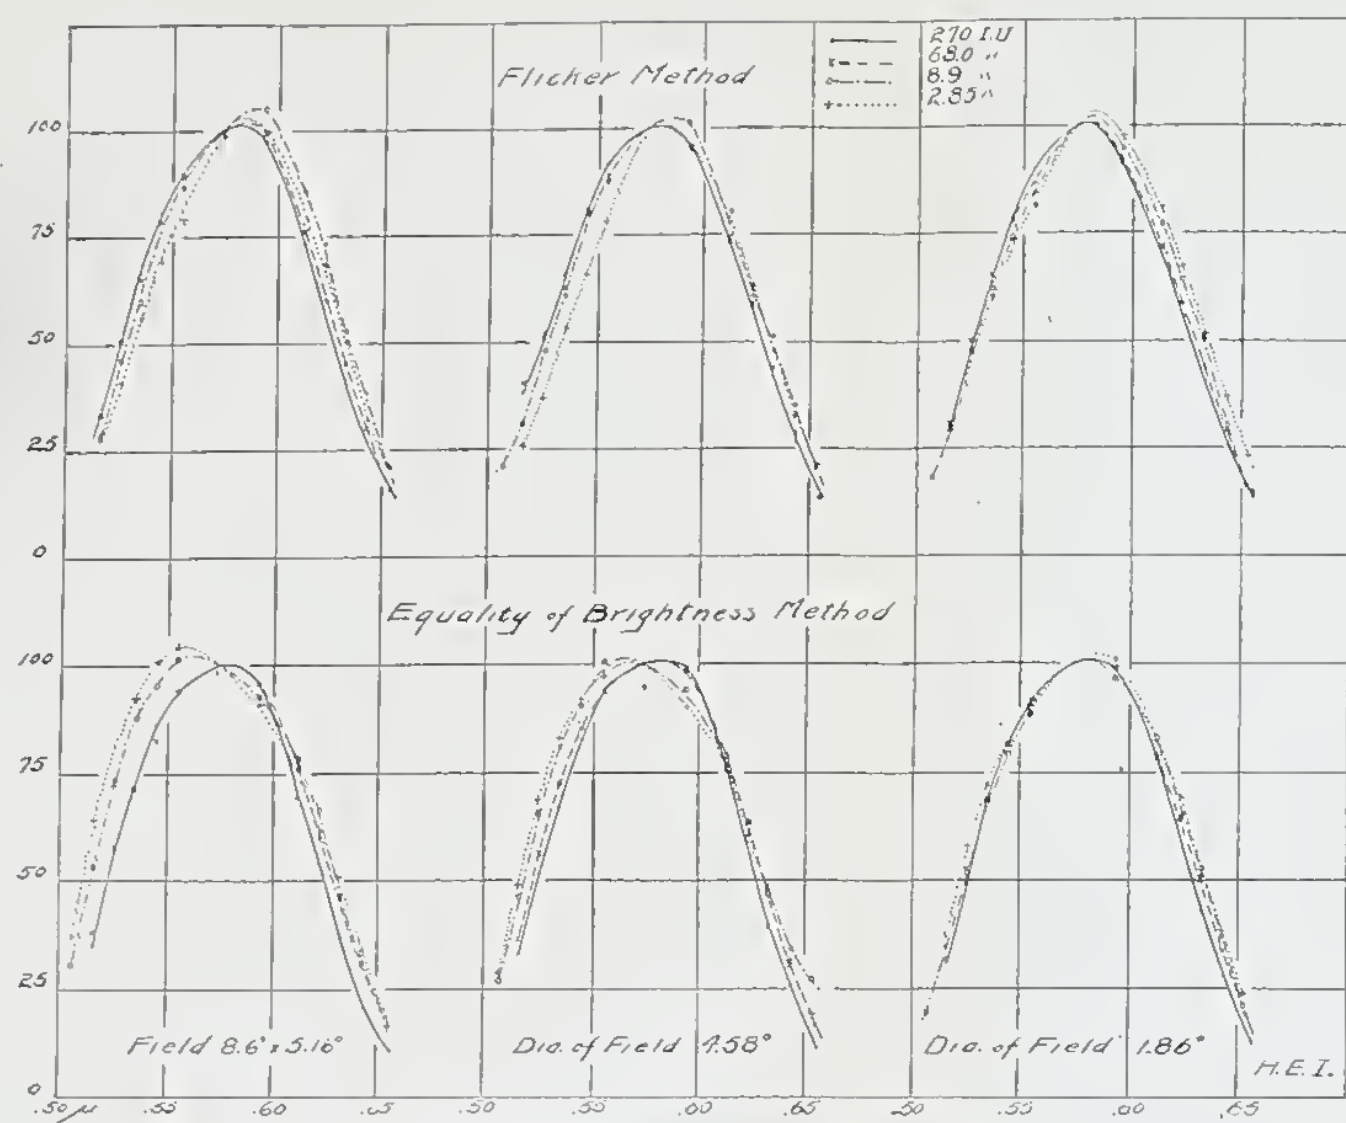 270 I.U
68.0 "
8.9 "
2.85 "
Flicker Method
100
75
50
25
0
Equality of Brightness Method
100
75
50
25
0
Field 8.6° x 5.16°
Dia. of Field 4.58°
Dia. of Field 1.86°
H.E.I.
.50 μ .55 .60 .65 .50 .55 .60 .65 .50 .55 .60 .65